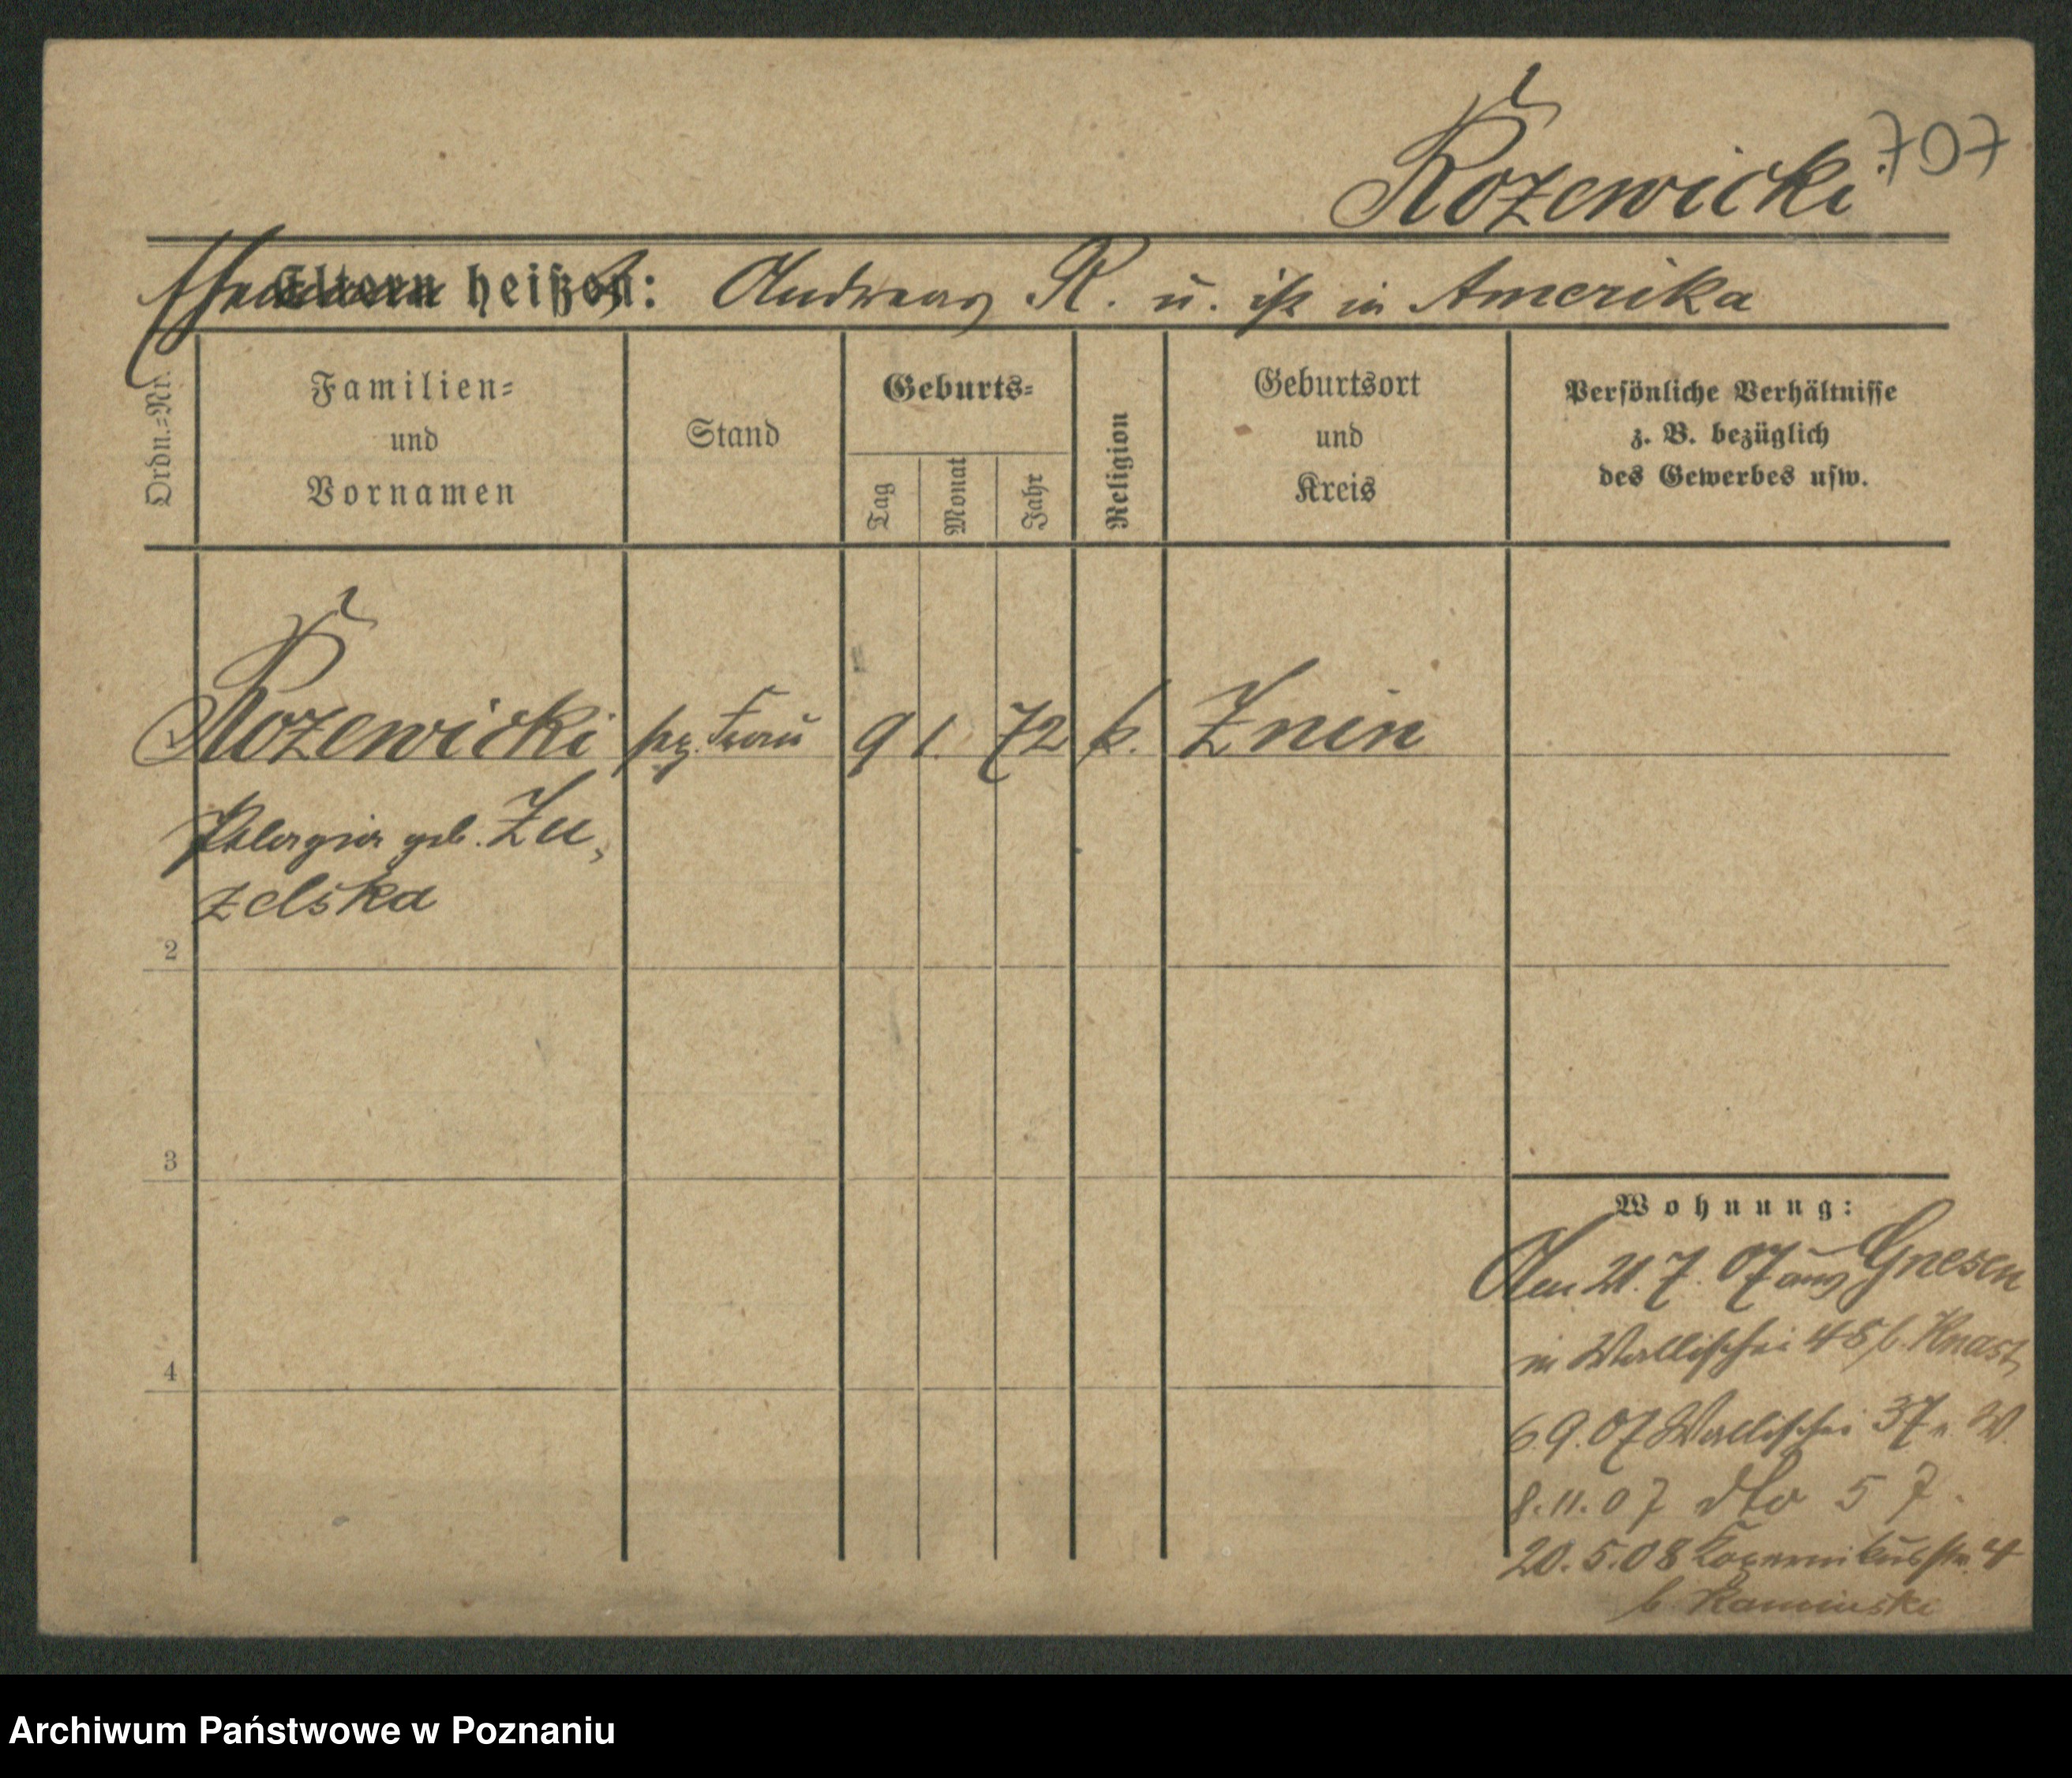 Rozewicki
707
Ehemann heißt: Andreas R. u. ist in Amerika
Ordn.=Nr.
Familien=
und
Vornamen
Stand
Geburts=
Tag
Monat
Jahr
Religion
Geburtsort
und
Kreis
Persönliche Verhältnisse
z. B. bezüglich
des Gewerbes usw.
Rozewicki Frau 9 1. 72 k. Znin
Pelagia geb. Zu,
zelska
2
3
4
Wohnung:
Am 21.7.07 aus Gnesen
in Wallischei 48 b. Knast
6.9.07 Wallischei 37 W.
8.11.07 dto 57.
20.5.08 Kopernikusstr. 4
b Kaminski
Archiwum Państwowe w Poznaniu